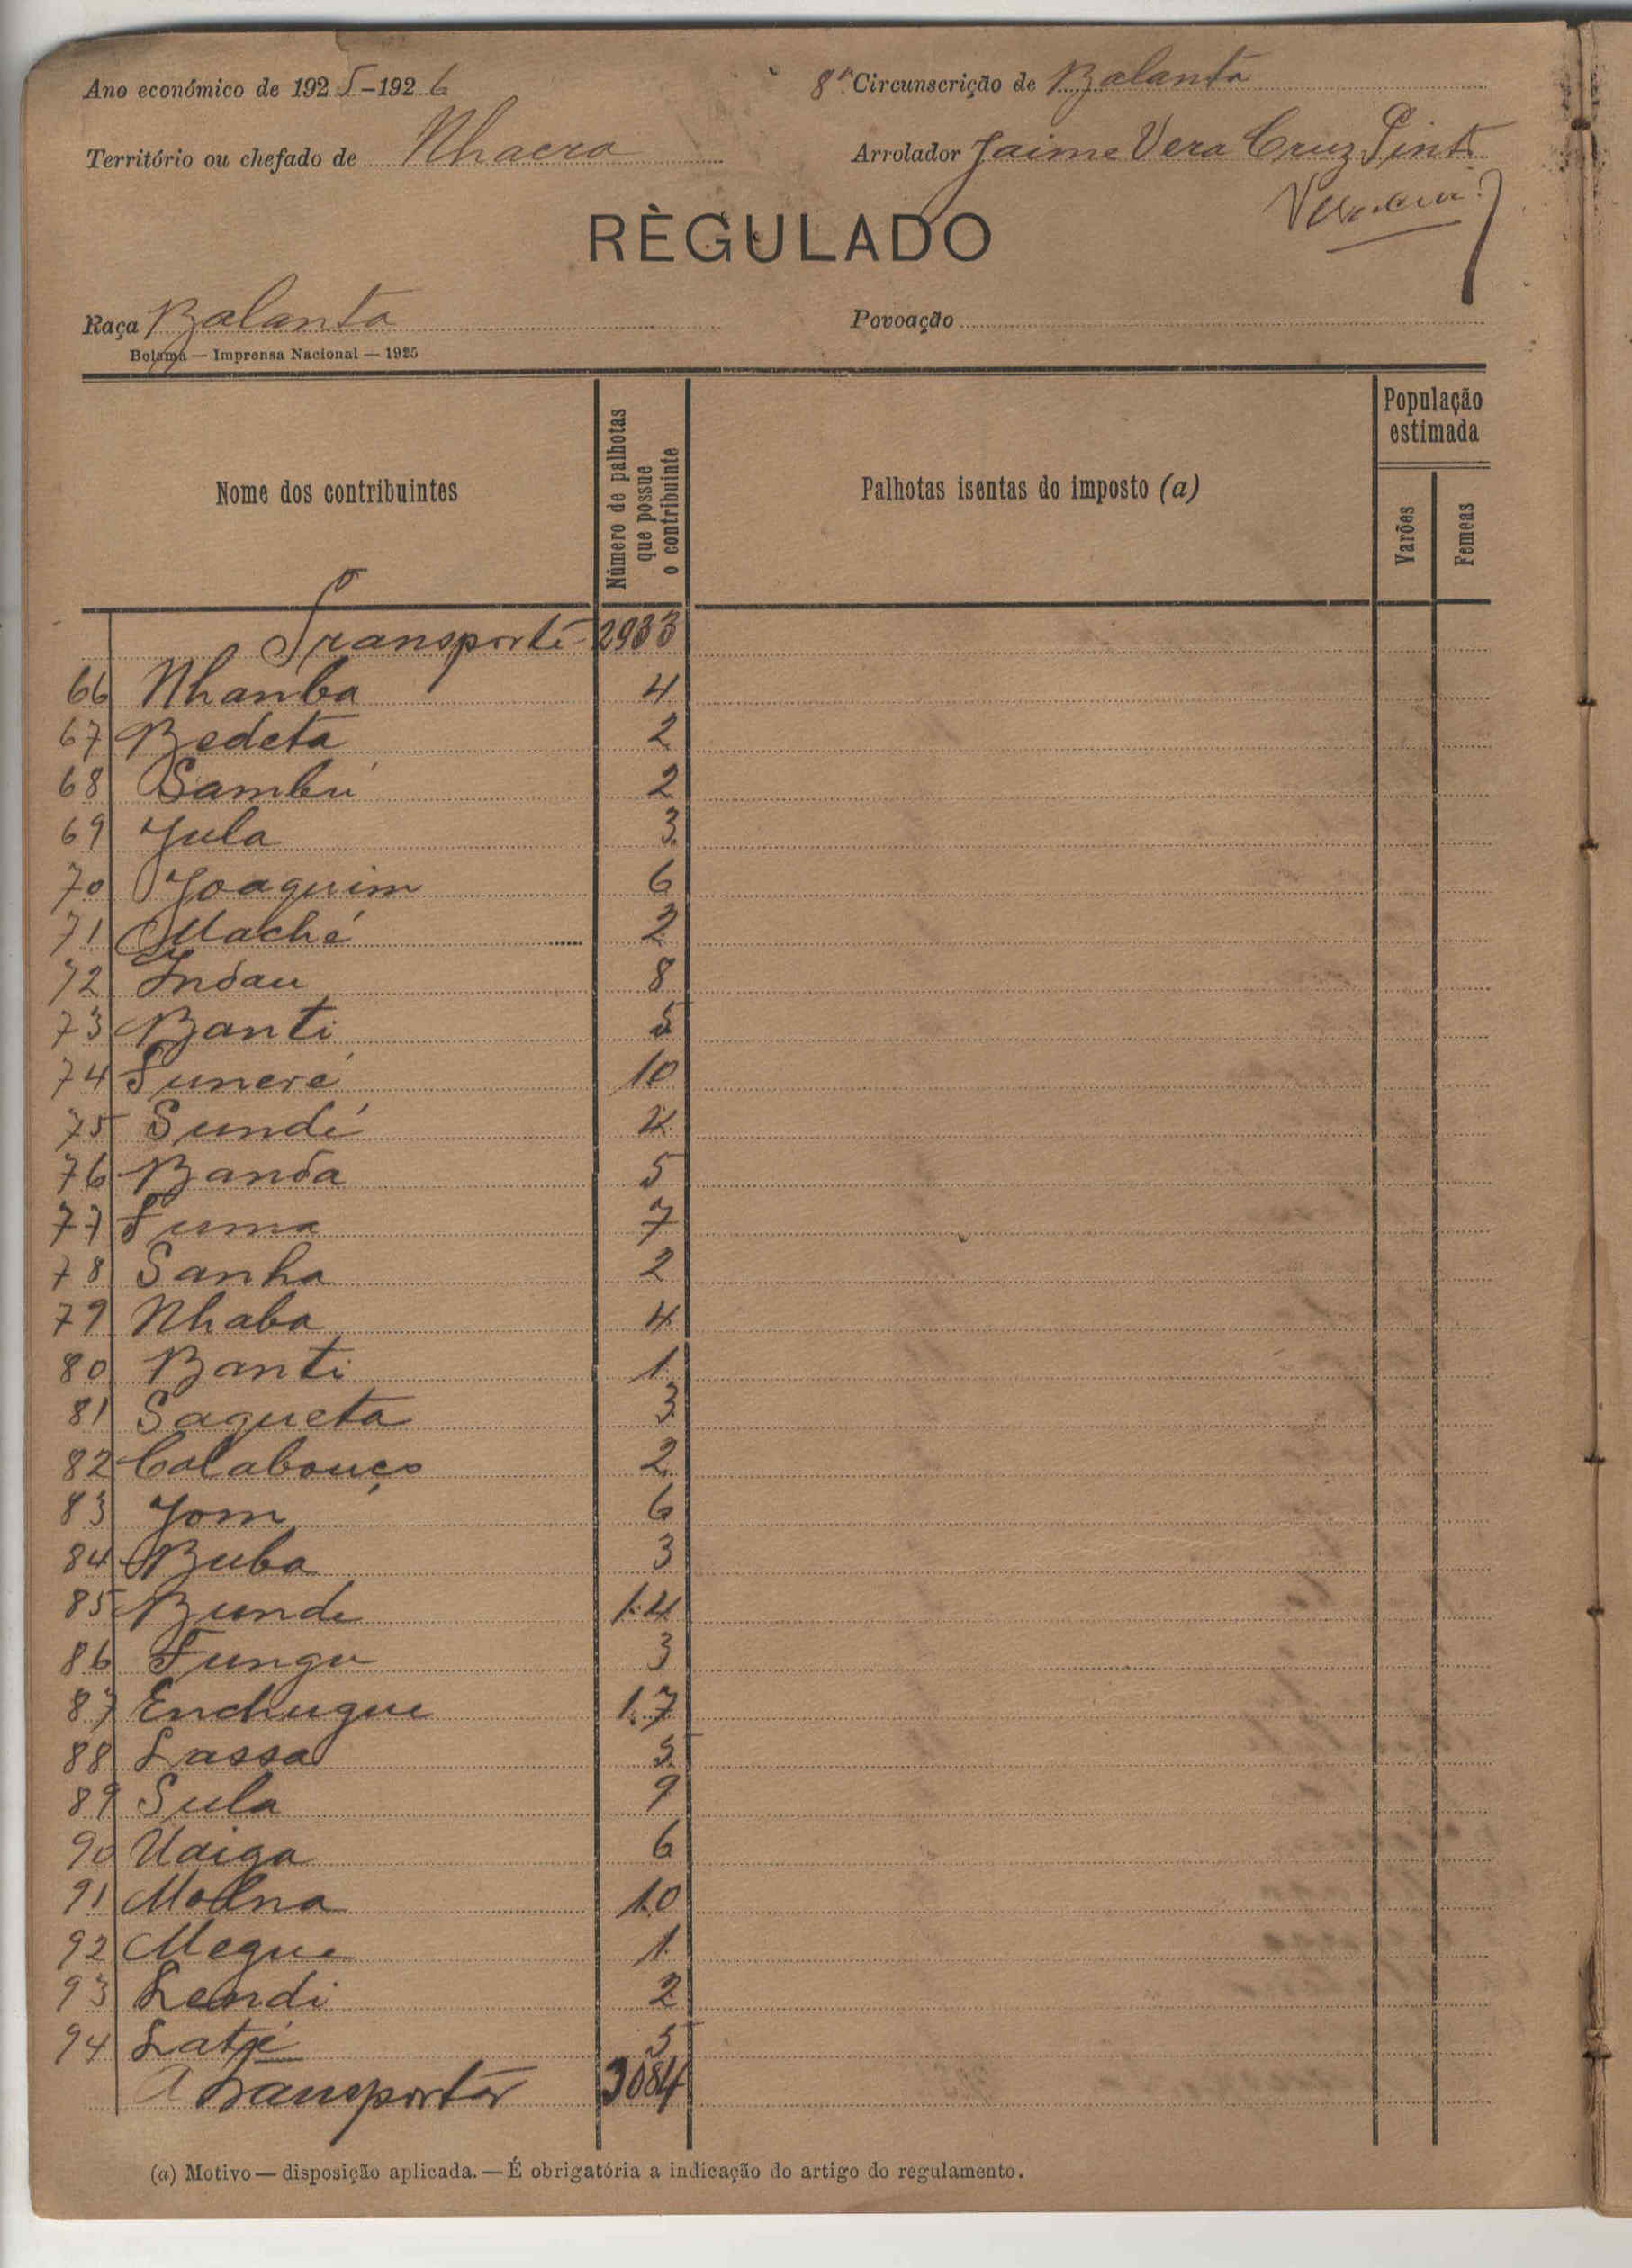 Ano económico de 1925-1926
8ª Circunscrição de Balanta
Território ou chefado de Nhacra
Arrolador Jaime Vera Cruz Pinto
RÈGULADO
Raça Balanta
Povoação
Bolama — Imprensa Nacional — 1925
Nome dos contribuintes
Número de palhotas que possue o contribuinte
Palhotas isentas do imposto (a)
População estimada
Varões
Femeas
Transporte 2933
66 Nhanba 4
67 Bedeta 2
68 Sambú 2
69 Jula 3
70 Joaquim 6
71 Maché 2
72 Indau 8
73 Banti 5
74 Funeré 10
75 Sundé 4
76 Banda 5
77 Fuma 7
78 Sanha 2
79 Nhaba 4
80 Banti 1
81 Saqueta 3
82 Calabouço 2
83 Jom 6
84 Buba 3
85 Bunde 14
86 Fungu 3
87 Enchugue 17
88 Lassa 5
89 Sula 9
90 Uaiga 6
91 10
92 Megue 1
93 2
94 5
A transportar 3084
(a) Motivo — disposição aplicada. — É obrigatória a indicação do artigo do regulamento.